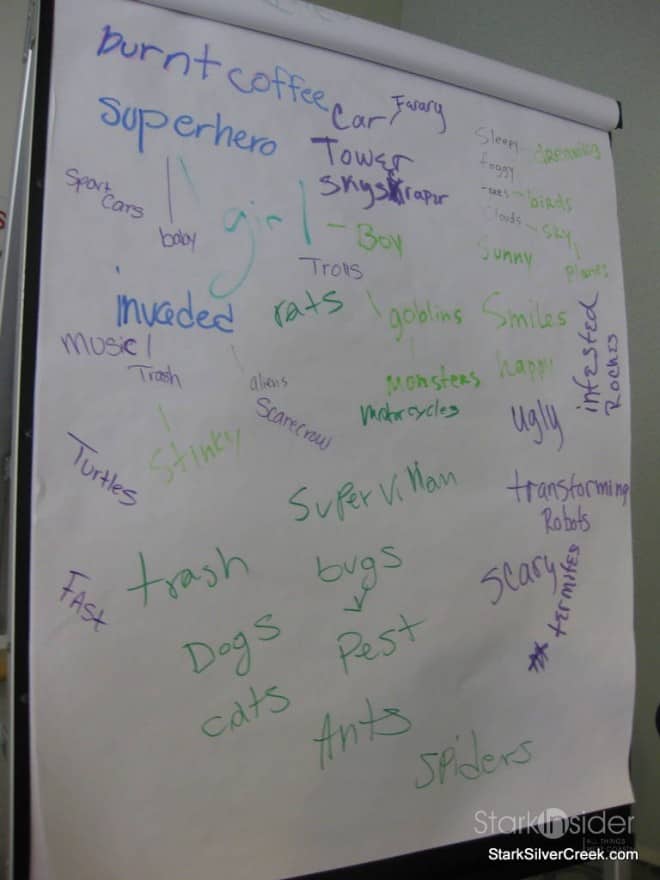 burnt coffee
Car Farary
superhero
Tower
skyskrapur
Sleep dreaming
foggy
trees birds
Clouds sky
planes
Sunny
Sport
Cars
baby
girl
Boy
Trolls
invaded
rats
goblins
Smiles
infested
Roches
music
Trash
aliens
Scarecrow
monsters
happy
motorcycles
ugly
Stinky
Turtles
Super Villian
transforming
Robots
trash
bugs
scary
termites
FAst
Dogs
Pest
cats
Ants
Spiders
StarkInsider
StarkSilverCreek.com